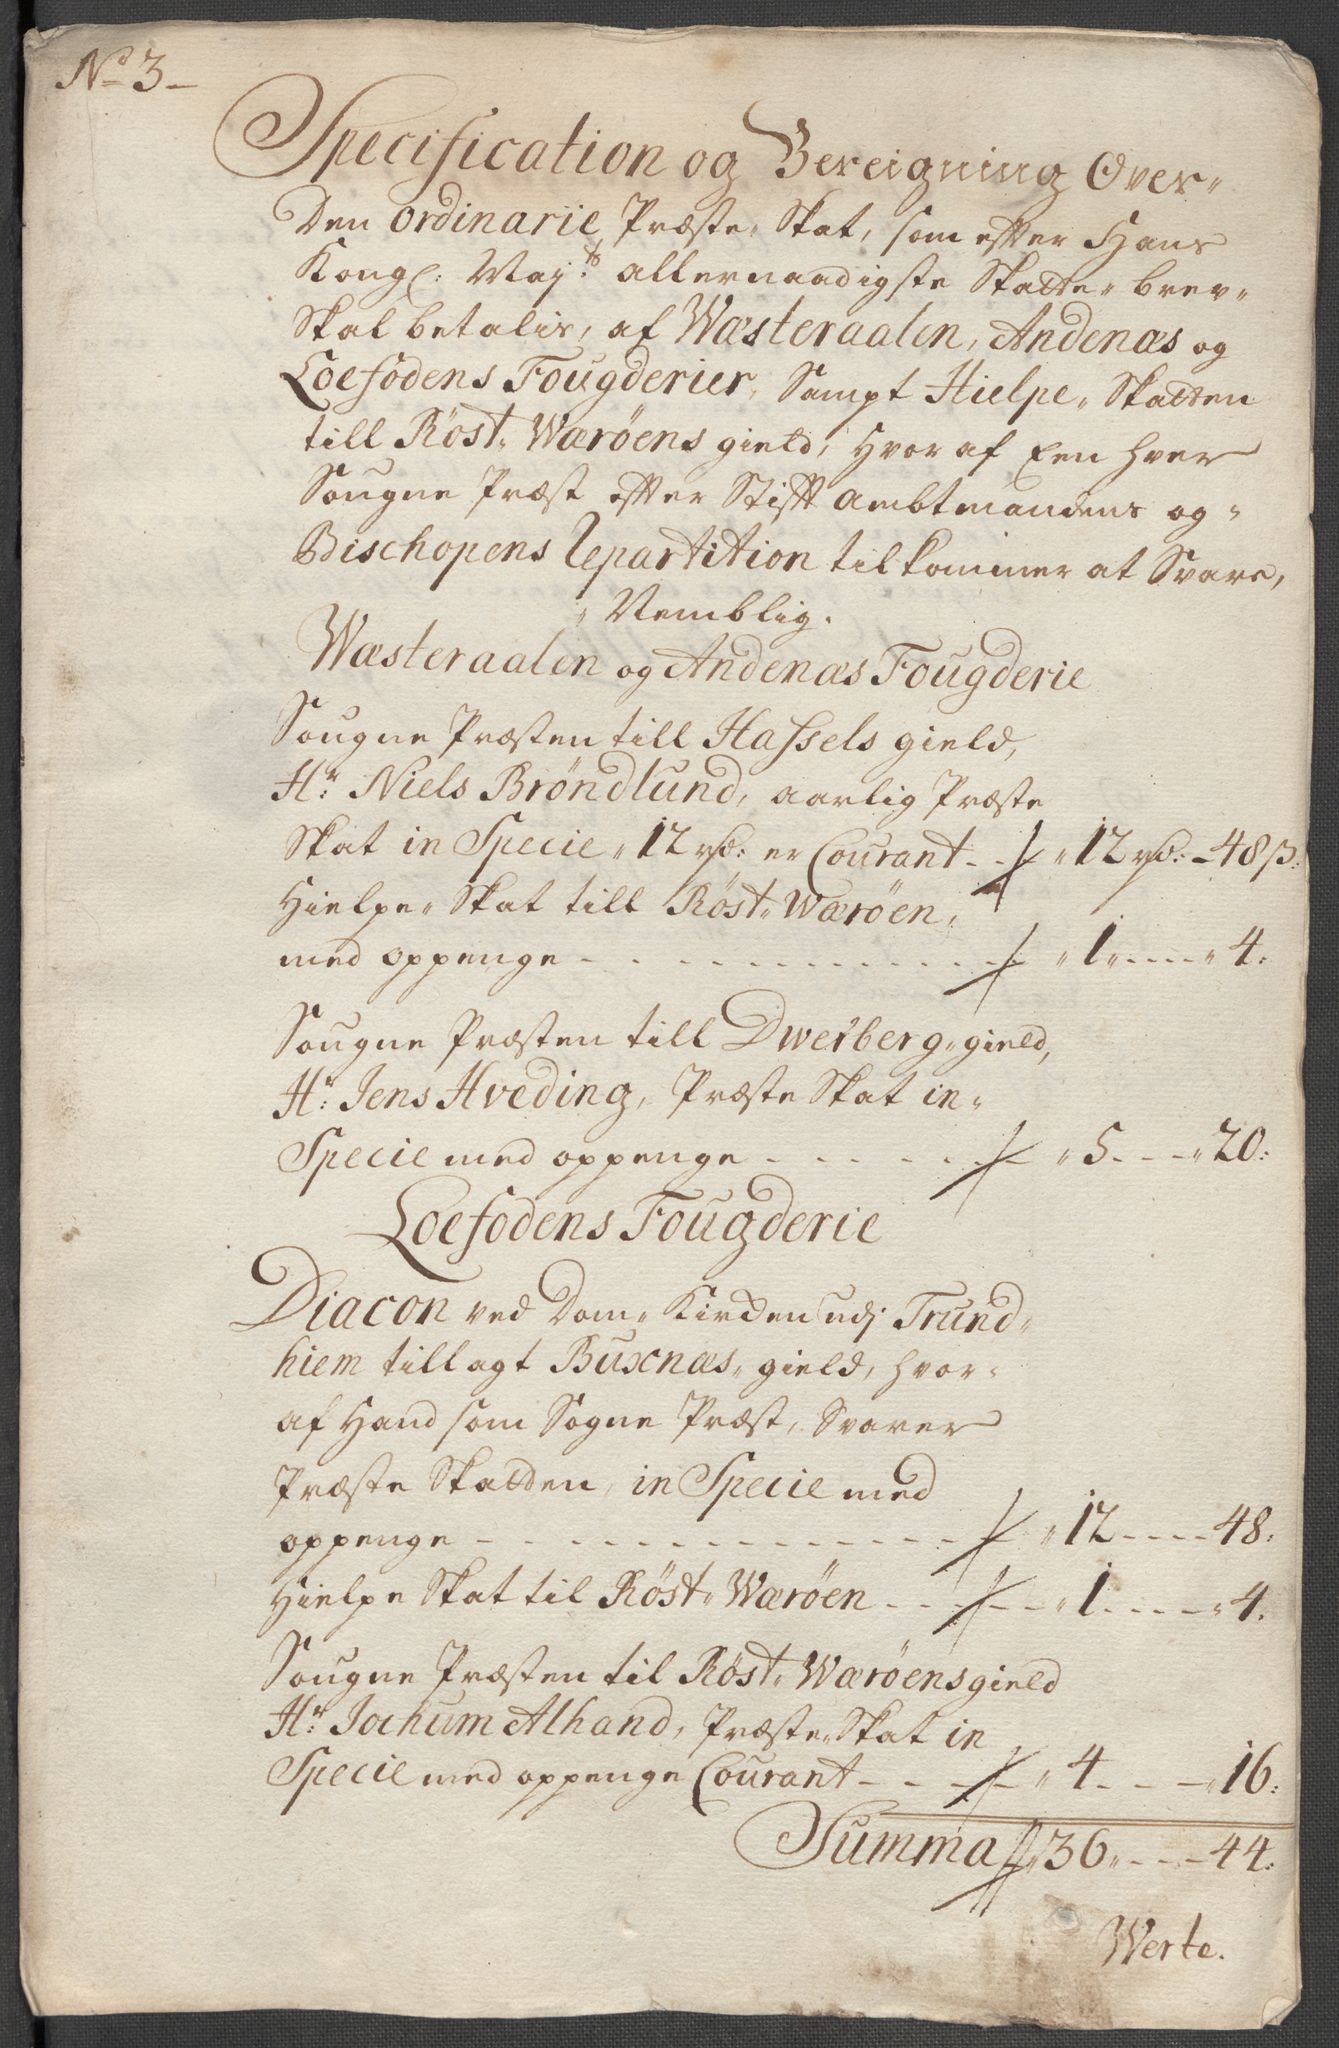 No 3
Specification og Bereigning Over
Den ordinarie Præste Skat, som efter Hans
Kongl: Maj:ts allernaadigste Skatte brev
Skal betalis, af Wæsteraalen, Andenæs og
Loefodens Fougderier, Sampt Hielpe Skatten
till Röst Wæröens gield, hvor af Een hver
Sougne Præst efter Stifft Ambtmandens og
Bischopens Repartition tilkommer at Svare,
Nemblig.
Wæsteraalen og Andenæs Fougderie
Sougne Præsten till Hassels gield,
Hr: Niels Bröndlund, aarlig Præste
Skat in Specie 12 rd: er Courant 12 rd: 48 ß:
Hielpe Skat till Röst Wæröen,
med oppenge 1 4:
Sougne Præsten till Dwerberg gield,
Hr: Jens Hveding, Præste Skat in
Specie med oppenge 5 20:
Loefodens Fougderie
Diacon ved Dom Kircken udj Trund
hiem tillagt Buxnæs gield, hvor
af Hand som Sogne Præst, Svarer
Præste Skatten, in Specie med
oppenge 12 48:
Hielpe Skat til Röst Wæröen 1 4.
Sougne Præsten til Röst Wæröens gield
Hr: Jochum Alhand, Præste Skat in
Specie med oppenge Courant 4 16:
Summa 36 44:
Werte.